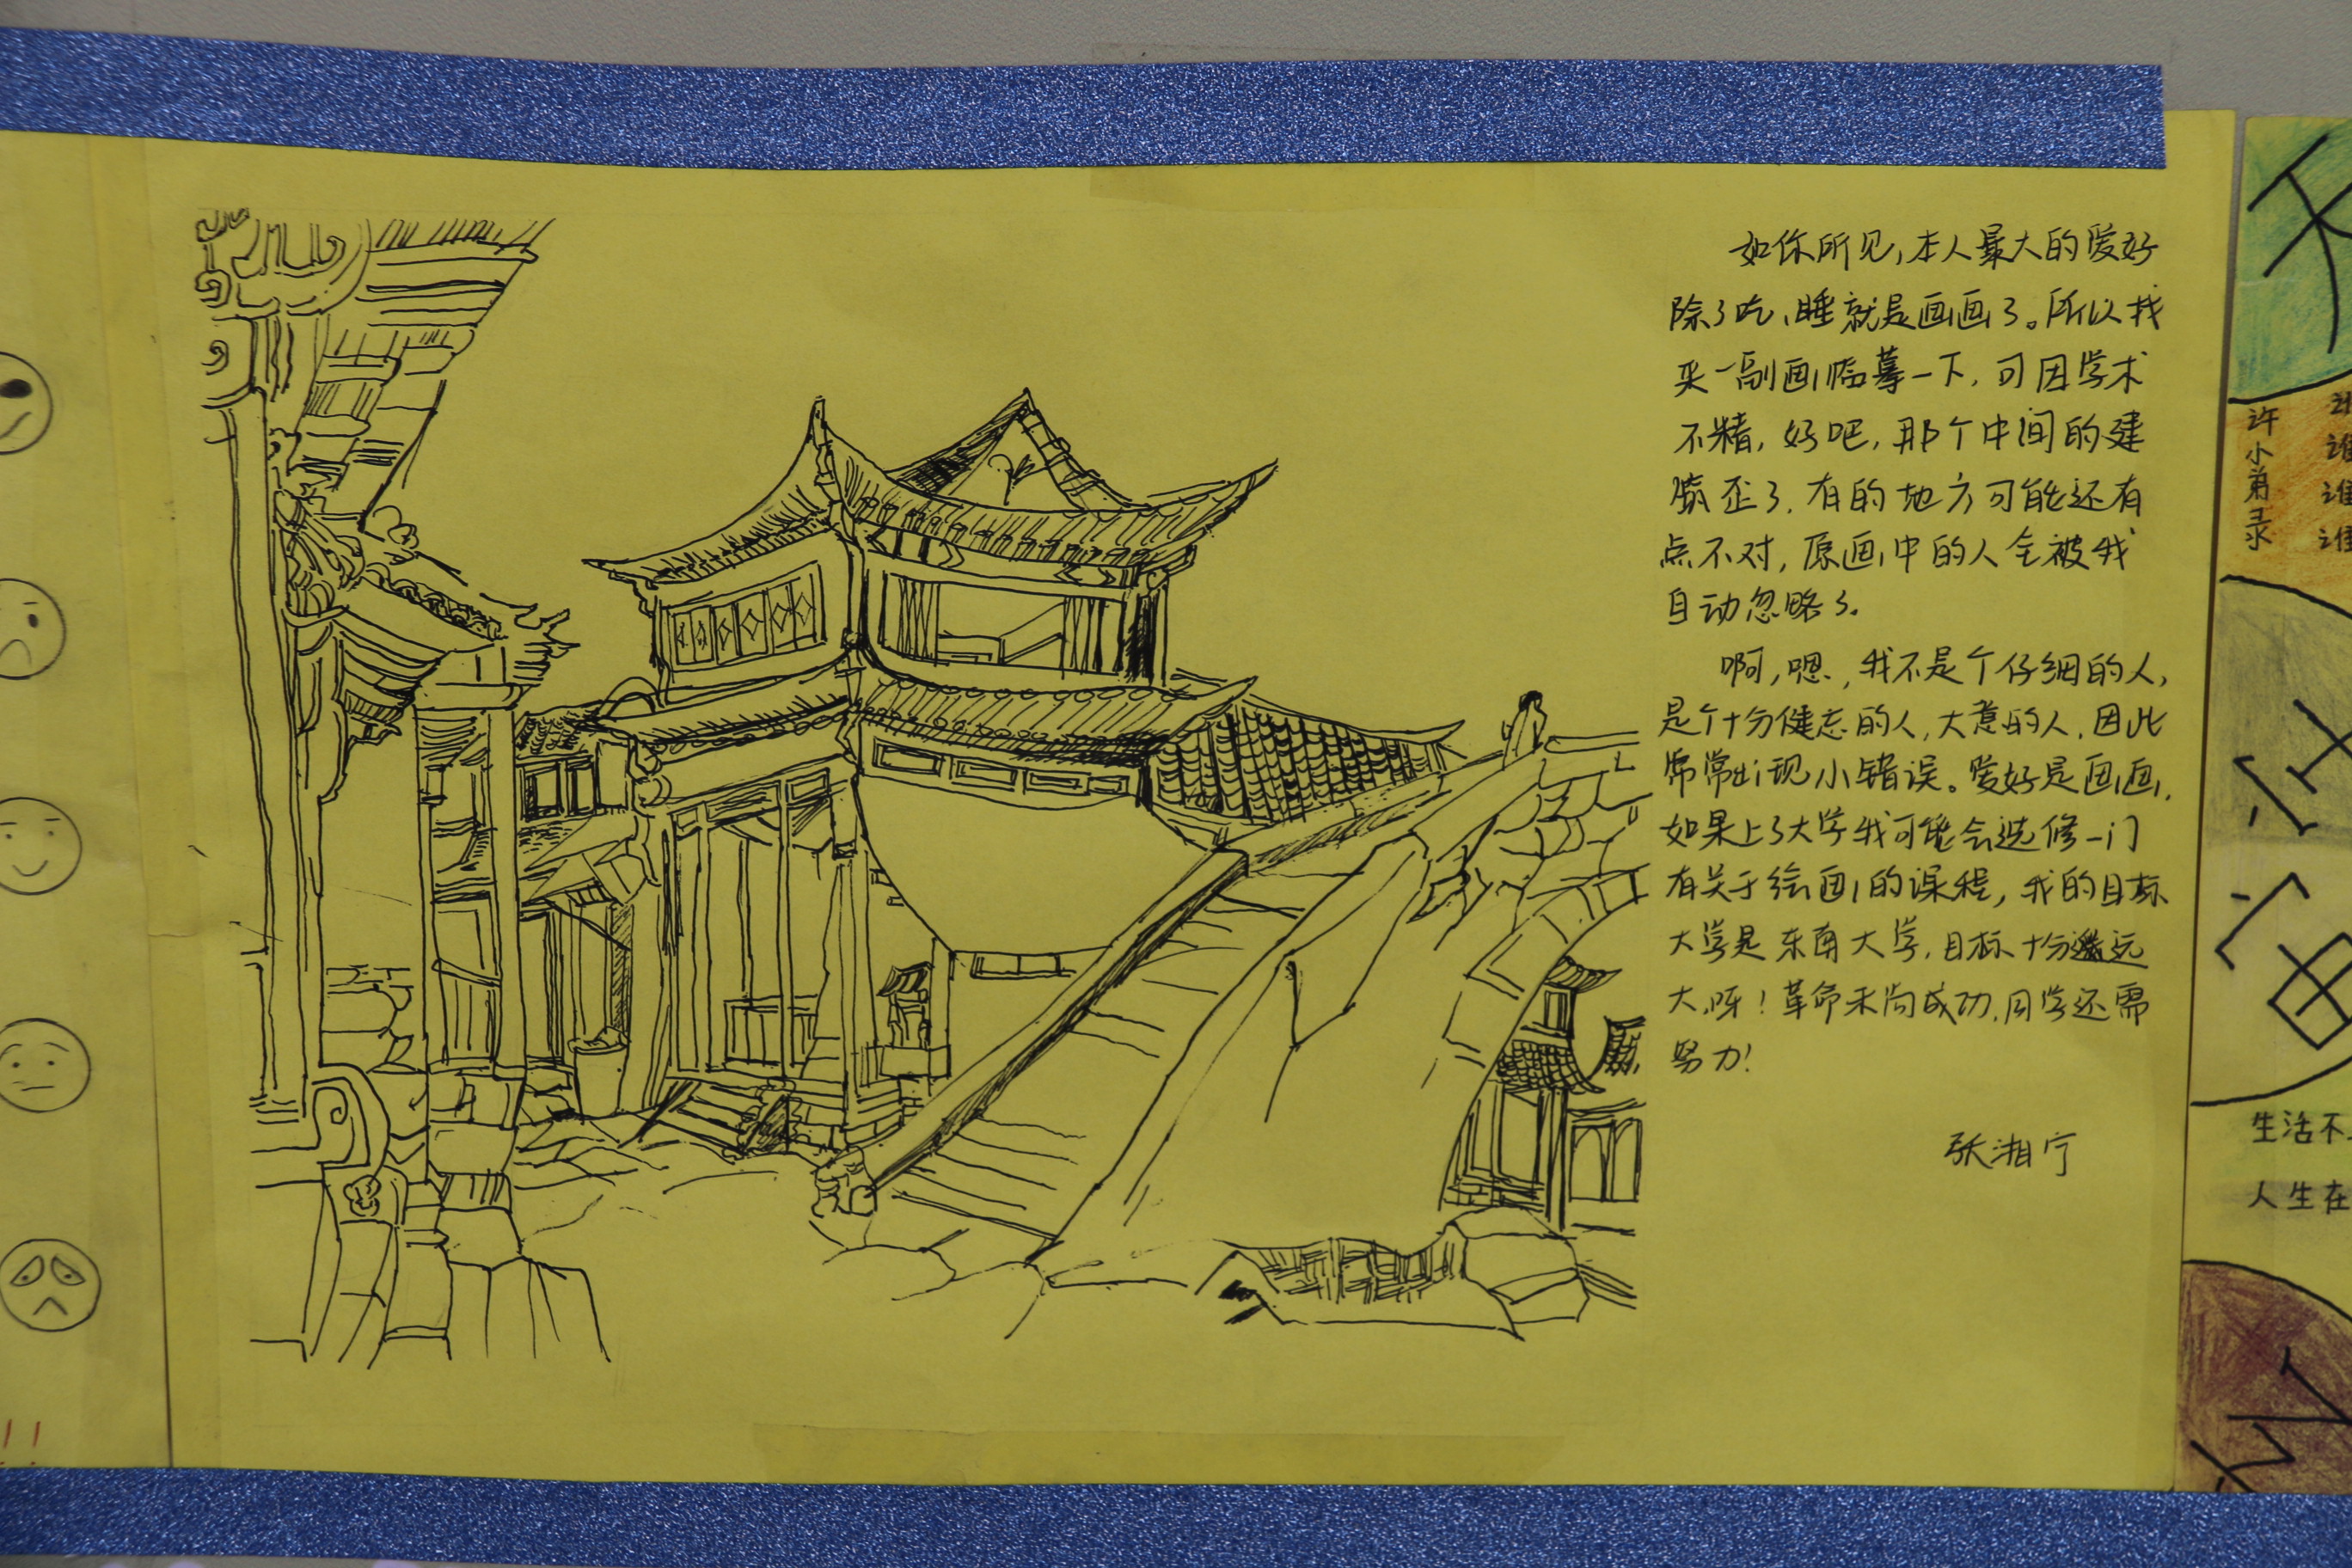 如你所见,本人最大的爱好
除了吃、睡就是画画了。所以找
来一副画临摹一下,可因学术
不精,好吧,那个中间的建
筑歪了,有的地方可能还有
点不对,原画中的人全被我
自动忽略了。
啊,嗯,我不是个仔细的人,
是个十分健忘的人,大意的人,因此
常常出现小错误。爱好是画画,
如果上了大学我可能会选修一门
有关于绘画的课程,我的目标
大学是东南大学,目标十分遥远
大呀!革命未尚成功,同学还需
努力!
张湘宁
许小弟录
生活不
人生在
!!